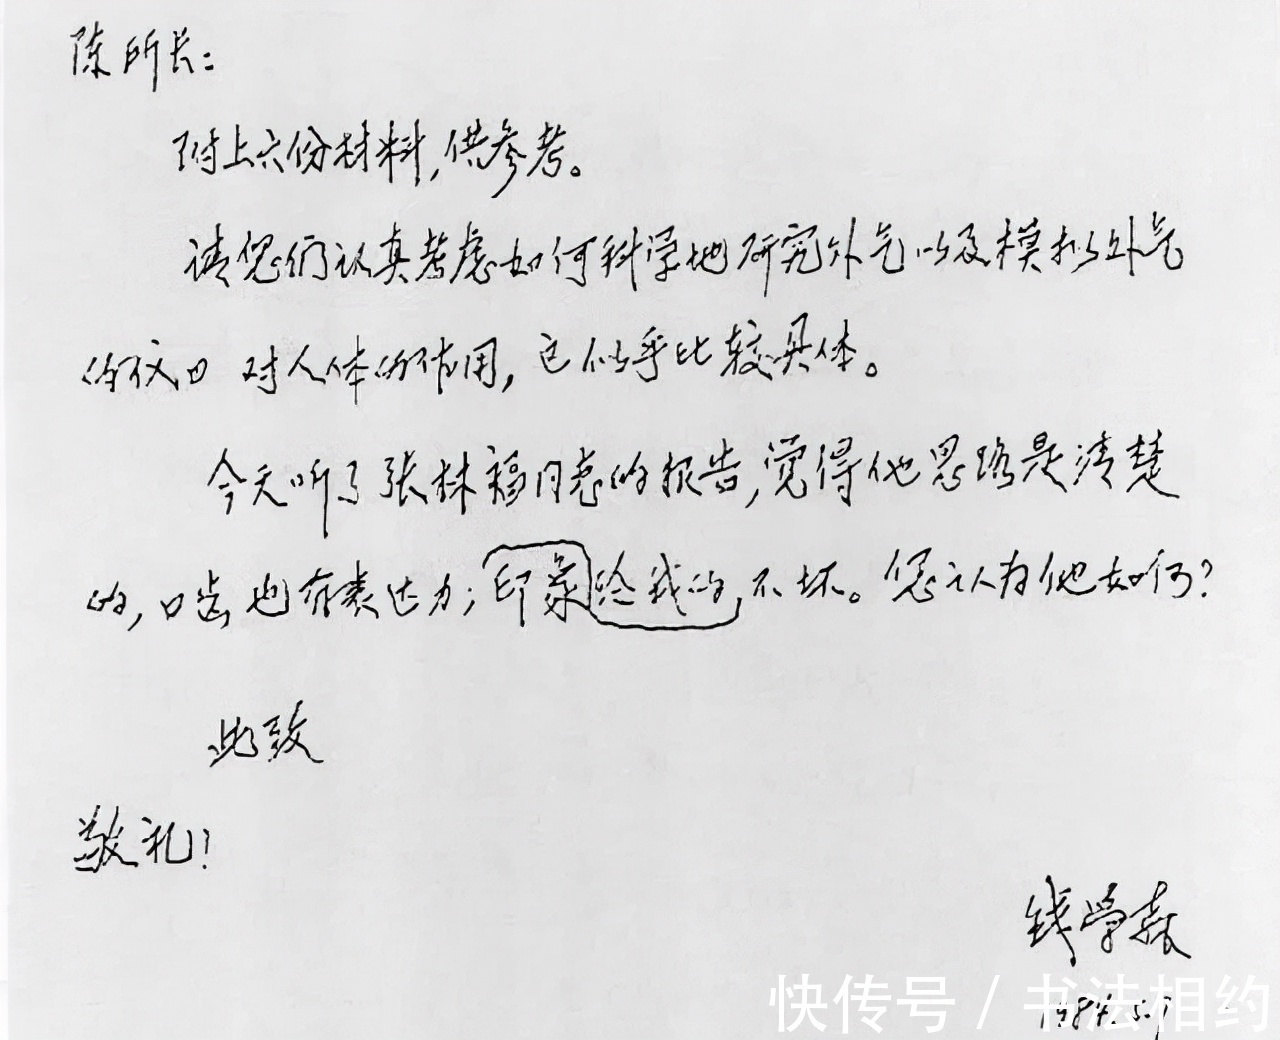 陈所长：
附上六份材料，供参考。
请您们认真考虑如何科学地研究外气以及模拟外气
的仪口 对人体的作用，它似乎比较具体。
今天听了张林福同志的报告，觉得他思路是清楚
的，口齿也有表达力；印象给我的，不坏。您认为他如何？
此致
敬礼！
钱学森
1984.5.9
快传号 / 书法相约